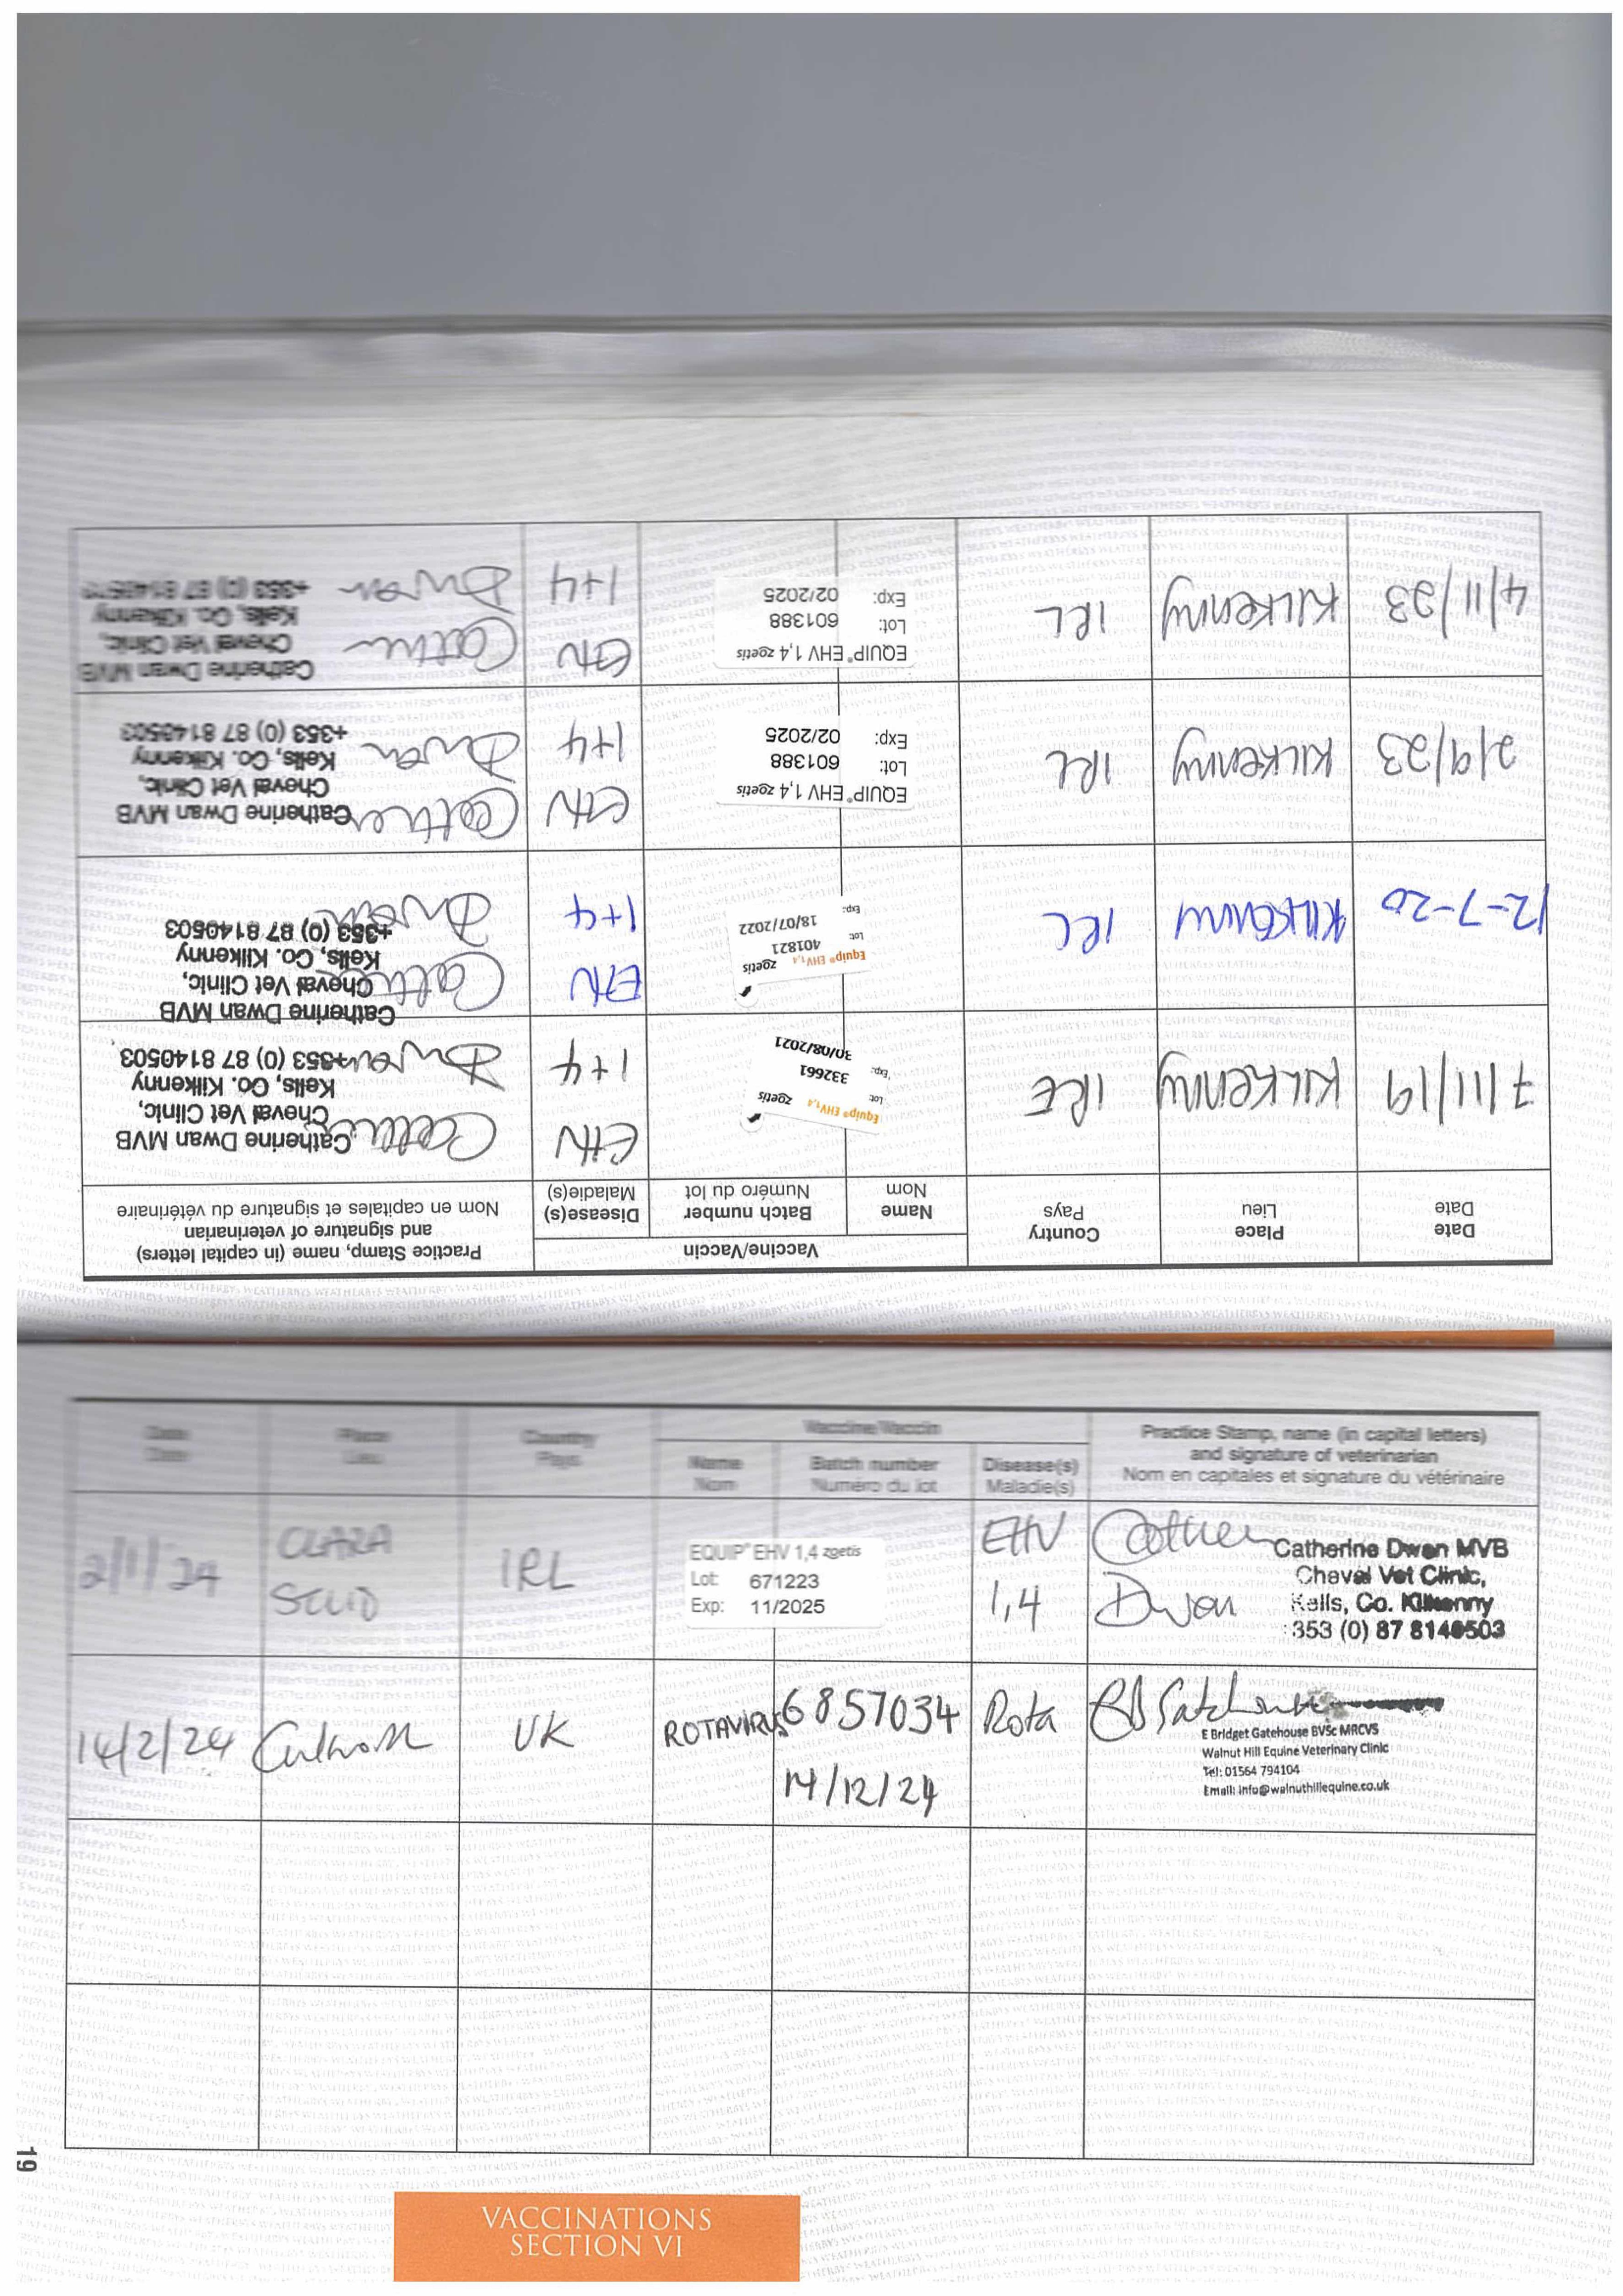 Date
Date
Place
Lieu
Country
Pays
Vaccine/Vaccin
Name
Nom
Batch number
Numéro du lot
Disease(s)
Maladie(s)
Practice Stamp, name (in capital letters)
and signature of veterinarian
Nom en capitales et signature du vétérinaire
7/11/19
KILKENNY
IRE
Equip® EHV1,4 zoetis
Lot: 332661
Exp: 30/08/2021
EHV
1+4
Catherine Dwan
Catherine Dwan MVB
Cheval Vet Clinic,
Kells, Co. Kilkenny
+353 (0) 87 8140503
12-7-20
KILKENNY
IRL
Equip® EHV1,4 zoetis
Lot: 401821
Exp: 18/07/2022
EHV
1+4
Catherine Dwan
Catherine Dwan MVB
Cheval Vet Clinic,
Kells, Co. Kilkenny
+353 (0) 87 8140503
2/9/23
KILKENNY
IRL
EQUIP® EHV 1,4 zoetis
Lot: 601388
Exp: 02/2025
EHV
1+4
Catherine Dwan
Catherine Dwan MVB
Cheval Vet Clinic,
Kells, Co. Kilkenny
+353 (0) 87 8140503
4/11/23
KILKENNY
IRL
EQUIP® EHV 1,4 zoetis
Lot: 601388
Exp: 02/2025
EHV
1+4
Catherine Dwan
Catherine Dwan MVB
Cheval Vet Clinic,
Kells, Co. Kilkenny
+353 (0) 87 8140503
Date
Date
Place
Lieu
Country
Pays
Vaccine/Vaccin
Name
Nom
Batch number
Numéro du lot
Disease(s)
Maladie(s)
Practice Stamp, name (in capital letters)
and signature of veterinarian
Nom en capitales et signature du vétérinaire
2/1/24
CLARA
STUD
IRL
EQUIP® EHV 1,4 zoetis
Lot: 671223
Exp: 11/2025
EHV
1,4
Catherine
Dwan
Catherine Dwan MVB
Cheval Vet Clinic,
Kells, Co. Kilkenny
353 (0) 87 8140503
14/2/24
Culworth
UK
ROTAVIRUS
6857034
14/12/24
Rota
EB Gatehouse
E Bridget Gatehouse BVSc MRCVS
Walnut Hill Equine Veterinary Clinic
Tel: 01564 794104
Email: info@walnuthillequine.co.uk
19
VACCINATIONS
SECTION VI